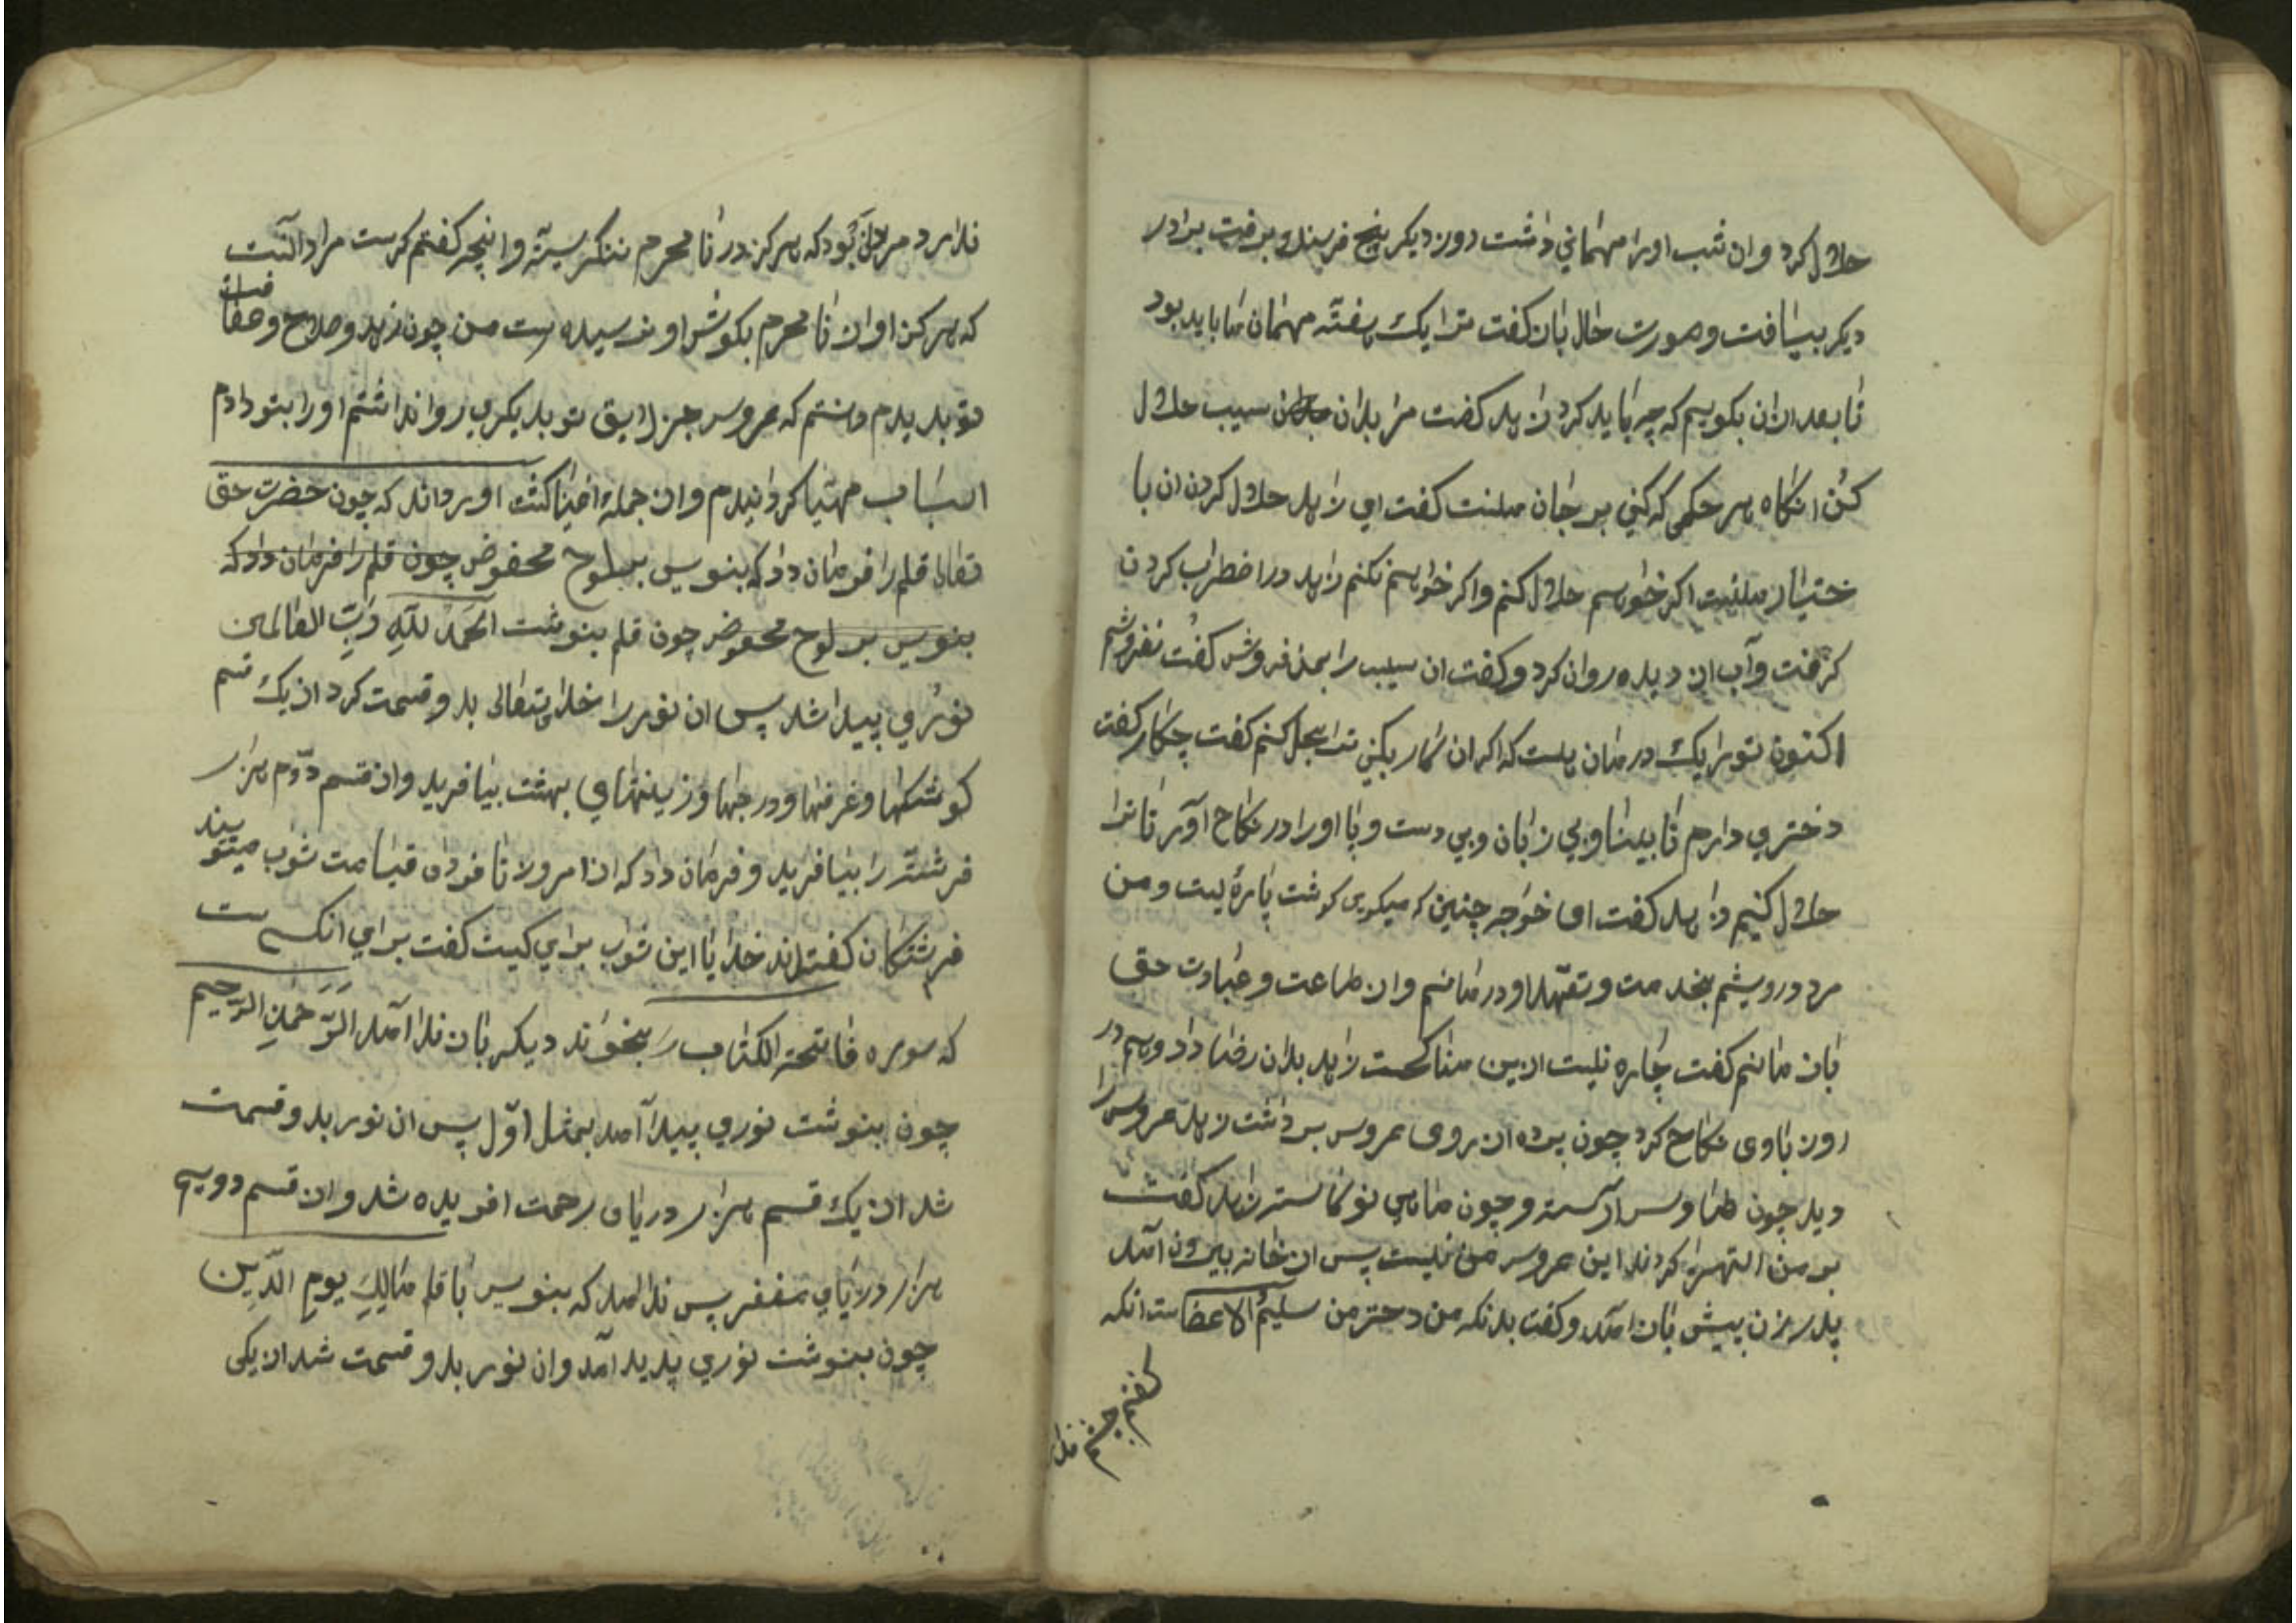 حلال کرد وان شب اورا مهمانی داشت روز دیکر پنج فرسنک برفت برادر
دیکر بیافت وصورت حال بان کفت ترا یک هفته مهمان ما باید بود
تا بعد ازان بکویم که چه باید کرد زاهد کفت مرا بدان سیب حلال
کن انکاه هر حکمی که کنی بر جان منست کفت ای زاهد حلال کردن ان با
ختیار منست اکر خواهم حلال کنم واکر خواهم نکنم زاهد در اضطراب کردن
کرفت وآب از دیده روان کرد وکفت ان سیب را بمن فروش کفت نفروشم
اکنون توبرا یک درمان هست که اکر ان کار بکنی ترا بحل کنم کفت چکار کفت
دختری دارم نابینا وبی زبان وبی دست وپا اورا در نکاح آور تا ترا
حلال کنیم زاهد کفت ای خواجه چنین که میکوی کوشت پارهٔ یست ومن
مرد درویشم بخدمت وتعهد او درمانم وان طاعت وعبادت حق
باز مانم کفت چاره نیست ازین مناکحت زاهد بدان رضا داد وهم در
روز باوی نکاح کرد چون پرده از روی عروس برداشت زاهد عروس را
دید چون طاوس آراسته وچون ماهی نوکاسته زاهد کفت
بر من استهزا کردند این عروس من نیست پس از خانه بیرون آمد
پدر زن پیش بان آمد وکفت بدنکه من دختر من سلیم الاعضاست انکه
کفتم چشم ندارد
ندارد مراد ان بود که هرکز در نا محرم ننکریسته وانچه کفتم کرست مراد آنست
که هرکز اواز نا محرم بکوش او نرسیده است من چون زهد وصلاح وعفافت
تو بدیدم دانستم که عروس جز لایق تو بدیکری روا نداشتم اورا بتو دادم
اسباب مهیا کردانیدم وان جمله اورداند که چون حضرت حق
تعالی قلم را فرمان داد که بنویس بر لوح محفوض چون قلم را فرمان داد که
بنویس بر لوح محفوض چون قلم بنوشت اَلحَمدُ لِلّٰهِ رَبِّ العالمین
نوری پیدا شد پس ان نور را خدایتعالی بدو قسمت کرد از یک قسم
کوشکها وغرفها ودرجها وزینتهای بهشت بیافرید وان قسم دوّم هزار
فرشته را بیافرید وفرمان داد که از امروز تا فردای قیامت ثواب مینویسند
فرشتکان کفتند خدایا این ثواب برای کیست کفت برای انکس است
که سوره فاتحة الکتاب را بخواند دیکر بان ندا آمد الرَّحمٰنِ الرَّحیم
چون بنوشت نوری پیدا آمد بمثل اوّل پس ان نور بدو قسمت
شد از یک قسم هزار دریای رحمت افریده شد وان قسم دویم
هزار دریای مغفر پس ندا آمد که بنویس یا قلم مَالِكِ یومِ الدّینِ
چون بنوشت نوری پدید آمد وان نور بدو قسمت شد از یکی